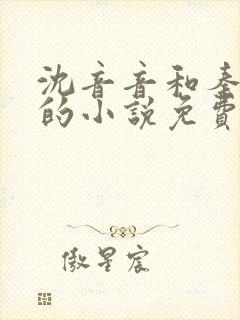 沈音音和秦
的小说免費
傲星宸